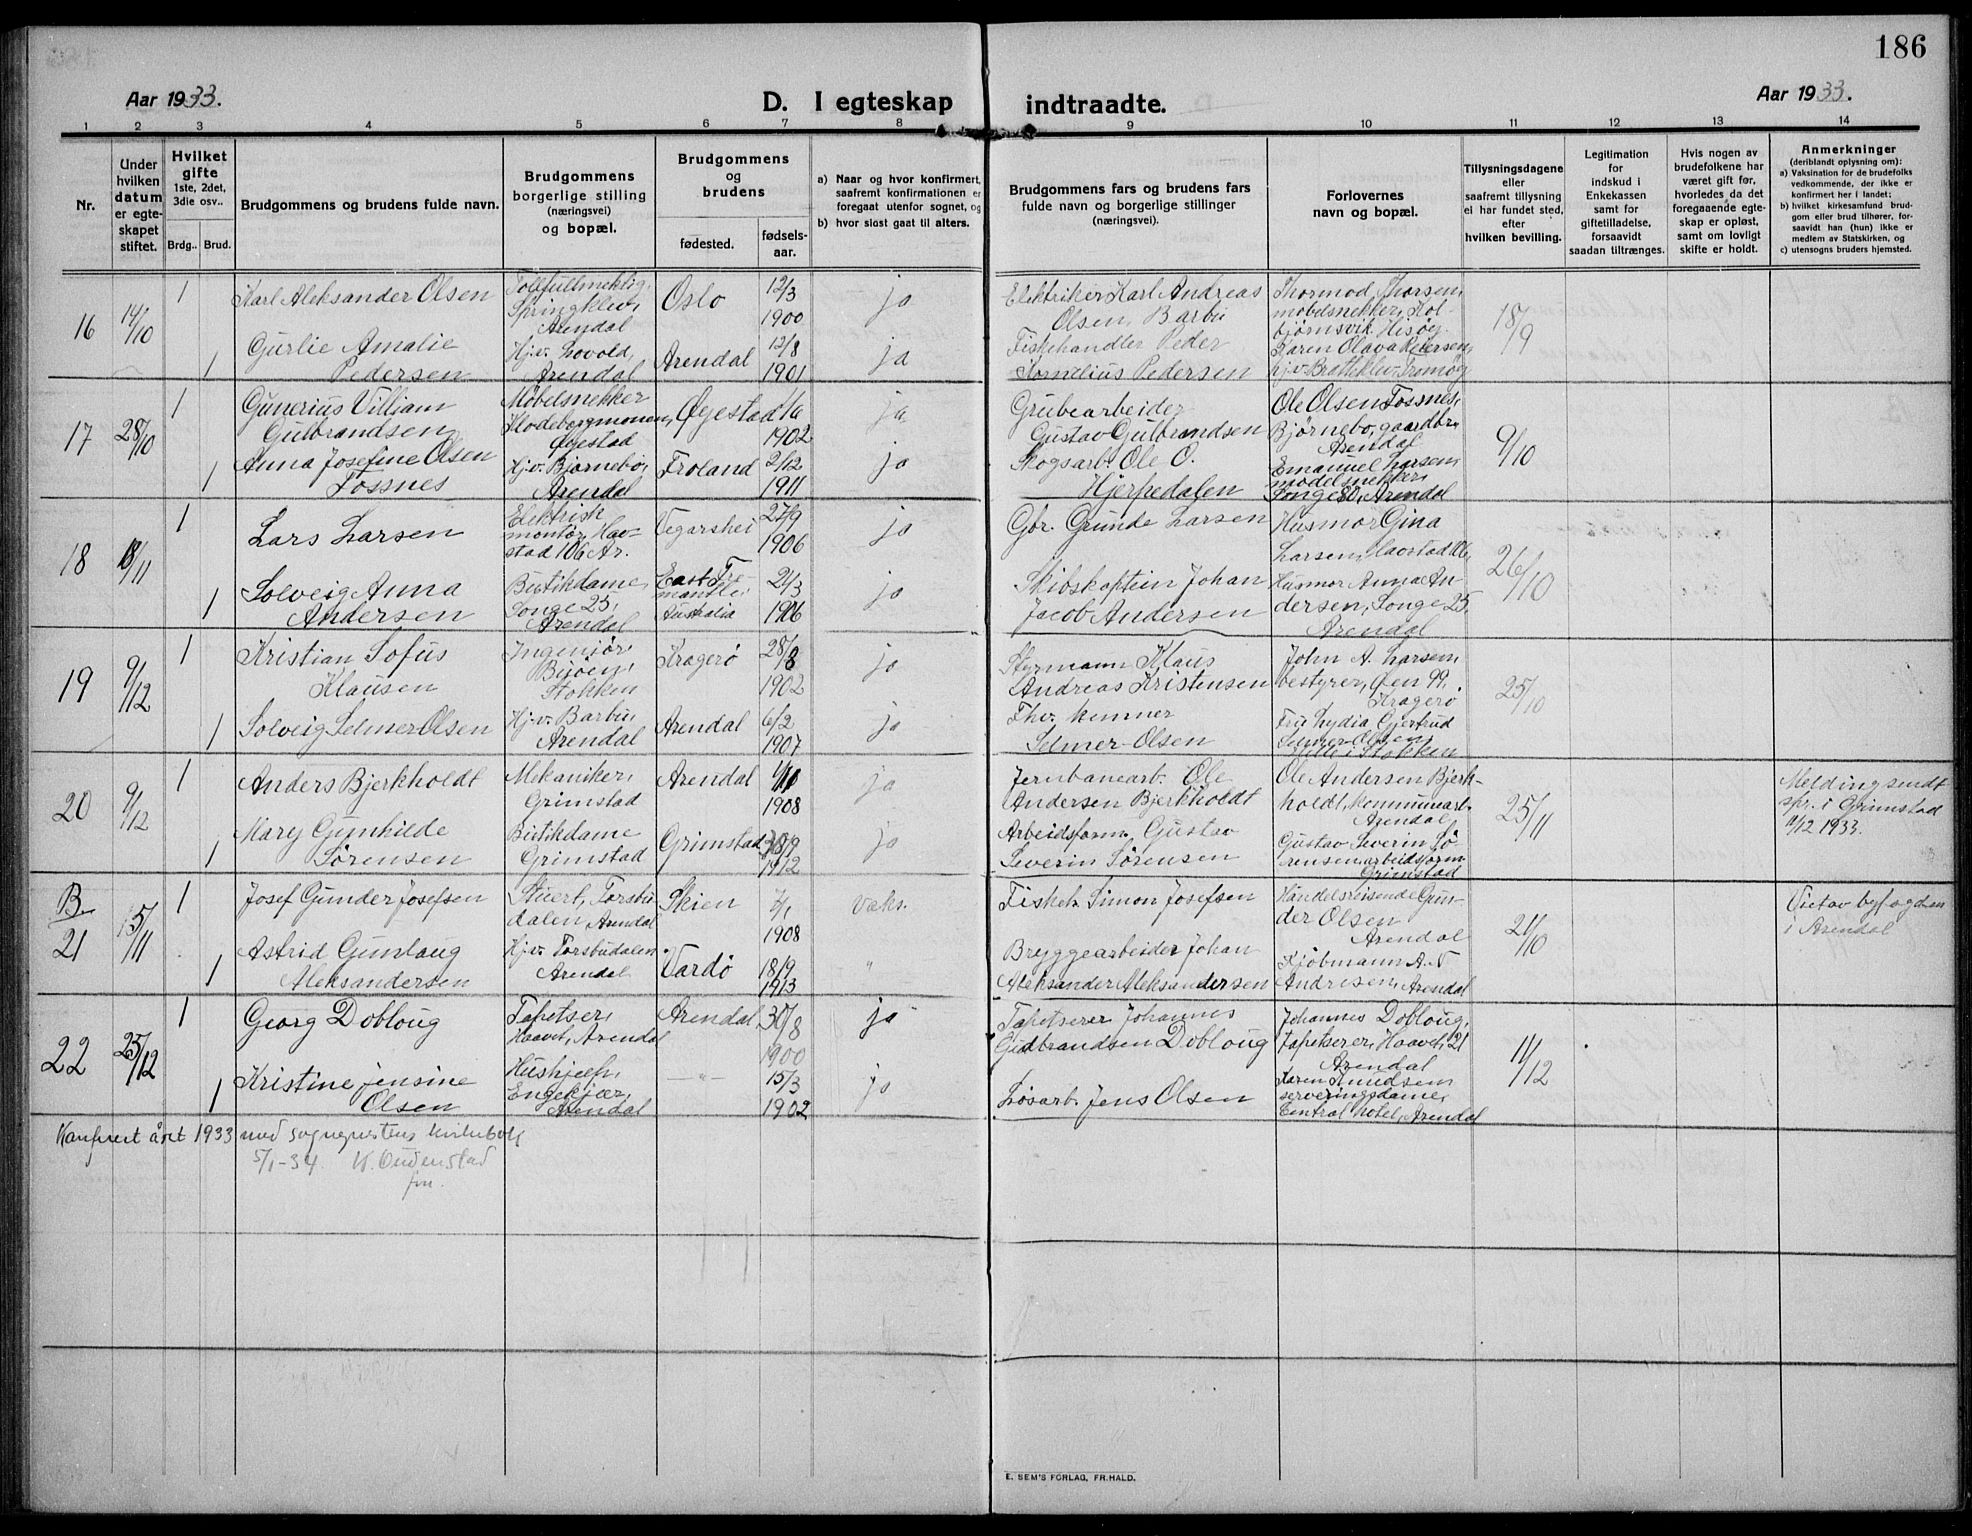 186
Aar 1933.
D. I egteskap indtraadte.
Aar 1933.
1 2 3 4 5 6 7 8 9 10 11 12 13 14
Nr.
Under hvilken datum er egteskapet stiftet.
Hvilket gifte
1ste, 2det, 3die osv..
Brdg.. Brud.
Brudgommens og brudens fulde navn.
Brudgommens borgerlige stilling (næringsvei) og bopæl.
Brudgommens og brudens
fødested.
fødsels-aar.
a) Naar og hvor konfirmert, saafremt konfirmationen er foregaat utenfor sognet, og
b) hvor sidst gaat til alters.
Brudgommens fars og brudens fars fulde navn og borgerlige stillinger (næringsvei).
Forlovernes navn og bopæl.
Tillysningsdagene eller saafremt tillysning ei har fundet sted, efter hvilken bevilling.
Legitimation for indskud i Enkekassen samt for giftetilladelse, forsaavidt saadan tiltrænges.
Hvis nogen av brudefolkene har været gift før, hvorledes da det foregaaende egteskap er opløst, samt om lovligt skifte er holdt.
Anmerkninger
(deriblandt oplysning om):
a) Vaksination for de brudefolks vedkommende, der ikke er konfirmert her i landet;
b) hvilket kirkesamfund brudgom eller brud tilhører, forsaavidt han (hun) ikke er medlem av Statskirken, og
c) utensogns bruders hjemsted.
16 14/10 1
Karl Aleksander Olsen
Springklev,
Arendal
Oslo 12/3 1900 ja
Elektriker Karl Andreas
Olsen, Barbu
Thormod Thorsen,
møbelsnekker, Kol-
bjørnsvik, Hisøy.
18/9
1 Gurlie Amalie
Pedersen
Hj.v. Lovold,
Arendal
Arendal 12/8 1901 ja
Fiskehandler Peder
Kornelius Pedersen
Karen Olava Pedersen,
hj.v. Bratteklev, Tromøy
17 28/10 1
Gunerius Villiam
Gulbrandsen
Møbelsnekker
Klodeborgmonen,
Øyestad
Øyestad 1902 ja
Grubearbeider
Gustav Gulbrandsen
Ole Olsen Fossnes,
Bjørnebo, gaardbr.
Arendal
9/10
1 Anna Josefine Olsen
Fossnes
Hj.v. Bjørnebo,
Arendal
Froland 2/12 1911 ja
Skogsarb. Ole O.
Hjerpedalen
Emanuel Larsen,
modelsnekker,
Songe 80, Arendal
18 18/11 1
Lars Larsen
Elektrisk
montør, Hav-
stad 106 Ar.
Vegarshei 27/9 1906 ja
Gbr. Grunde Larsen
Husmor Gina
Larsen, Havstad 106,
26/10
1 Solveig Anna
Andersen
Butikdame,
Songe 25,
Arendal
East Fre-
mantle,
Australia
21/3 1906 ja
Skibskaptein Johan
Jacob Andersen
Husmor Anna An-
dersen, Songe 25.
Arendal
19 9/12 1
Kristian Sofus
Klausen
Ingeniør,
Bujoen,
Stokken
Kragerø 28/8 1902 ja
Styrmann Klaus
Andreas Kristensen
John A. Larsen,
bestyrer, Øen 99,
Kragerø
25/10
1 Solveig Selmer Olsen
Hj.v. Barbu,
Arendal
Arendal 6/2 1907 ja
Thv. kemner
Selmer-Olsen
Fru Lydia Gjertrud
Selmer-Olsen,
Stokken
20 9/12 1
Anders Bjerkholdt
Mekaniker,
Grimstad
Arendal 1908 ja
Jernbanearb. Ole
Andersen Bjerkholdt
Ole Andersen Bjerk-
holdt, kommunearb.
Arendal
25/11
Melding sendt
spr. i Grimstad
9/12 1933.
1 Mary Gunhilde
Sørensen
Butikdame
Grimstad
Grimstad 30/9 1912 ja
Arbeidsform. Gustav
Severin Sørensen
Gustav Severin Sø-
rensen, arbeidsform.
Grimstad
B.
21 15/11 1
Josef Gunder Josefsen
Stuert, Torsbu-
dalen, Arendal
Skien 7/1 1908 vaks.
Fisker Simon Josefsen
Handelsreisende Gun-
der Olsen
Arendal
21/10
Viet av byfogden
i Arendal
1 Astrid Gunlaug
Aleksandersen
Hj.v. Torsbudalen,
Arendal
Vardø 18/9 1913 "
Bryggearbeider Johan
Aleksander Aleksandersen
Kjøbmann A. N.
Andresen, Arendal
22 25/12 1
Georg Dobloug
Tapetser,
Haavet, Arendal
Arendal 30/8 1900 ja
Tapetserer Johannes
Gulbrandsen Dobloug
Johannes Dobloug,
tapetserer, Haavet, 21
Arendal
11/12
1 Kristine Jensine
Olsen
Hushjelp,
Engekjær,
Arendal
—"— 15/3 1902 ja
Løsarb. Jens Olsen
Karen Knudsen
serveringsdame,
Central hotel, Arendal
Konferert året 1933 med sogneprestens kirkebok
5/1-34.
E. SEM'S FORLAG, FR.HALD.